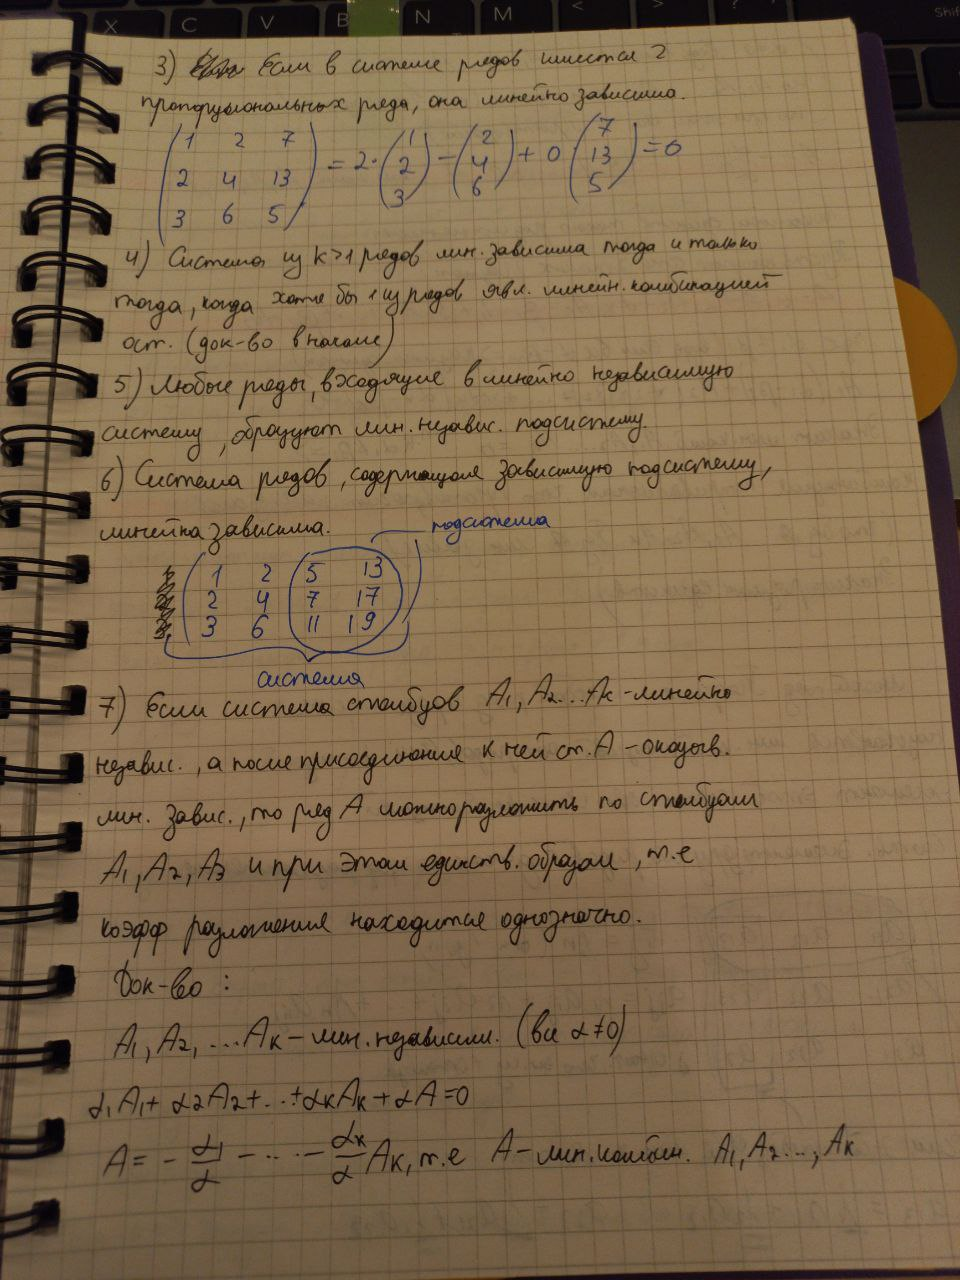 X C V B N M < > ? Shif
3) Если в системе рядов имеется 2
пропорциональных ряда, она линейно зависима.
(1 2 7
2 4 13
3 6 5) = 2·(1 2 3) − (2 4 6) + 0 (7 13 5) = 0
4) Система из k>1 рядов лин. зависима тогда и только
тогда, когда хотя бы 1 из рядов явл. линейн. комбинацией
ост. (док-во в начале)
5) Любые ряды, входящие в линейно независимую
систему, образуют лин. независ. подсистему.
6) Система рядов, содержащая зависимую подсистему,
линейна зависима.
подсистема
(1 2 5 13
2 4 7 17
3 6 11 19)
система
7) Если система столбцов A₁, A₂...Aк - линейно
независ., а после присоединения к ней ст. A - оказыв.
лин. завис., то ряд A можно разложить по столбцам
A₁, A₂, A₃ и при этом единств. образом, т.е
коэфф разложения находится однозначно.
Док-во :
A₁, A₂, ...Aк - лин. независим. (все α≠0)
α₁A₁+ α₂A₂+...+αкAк+αA=0
A= - α₁/α - ... - αк/α Aк, т.е A - лин. комбин. A₁, A₂..., Aк